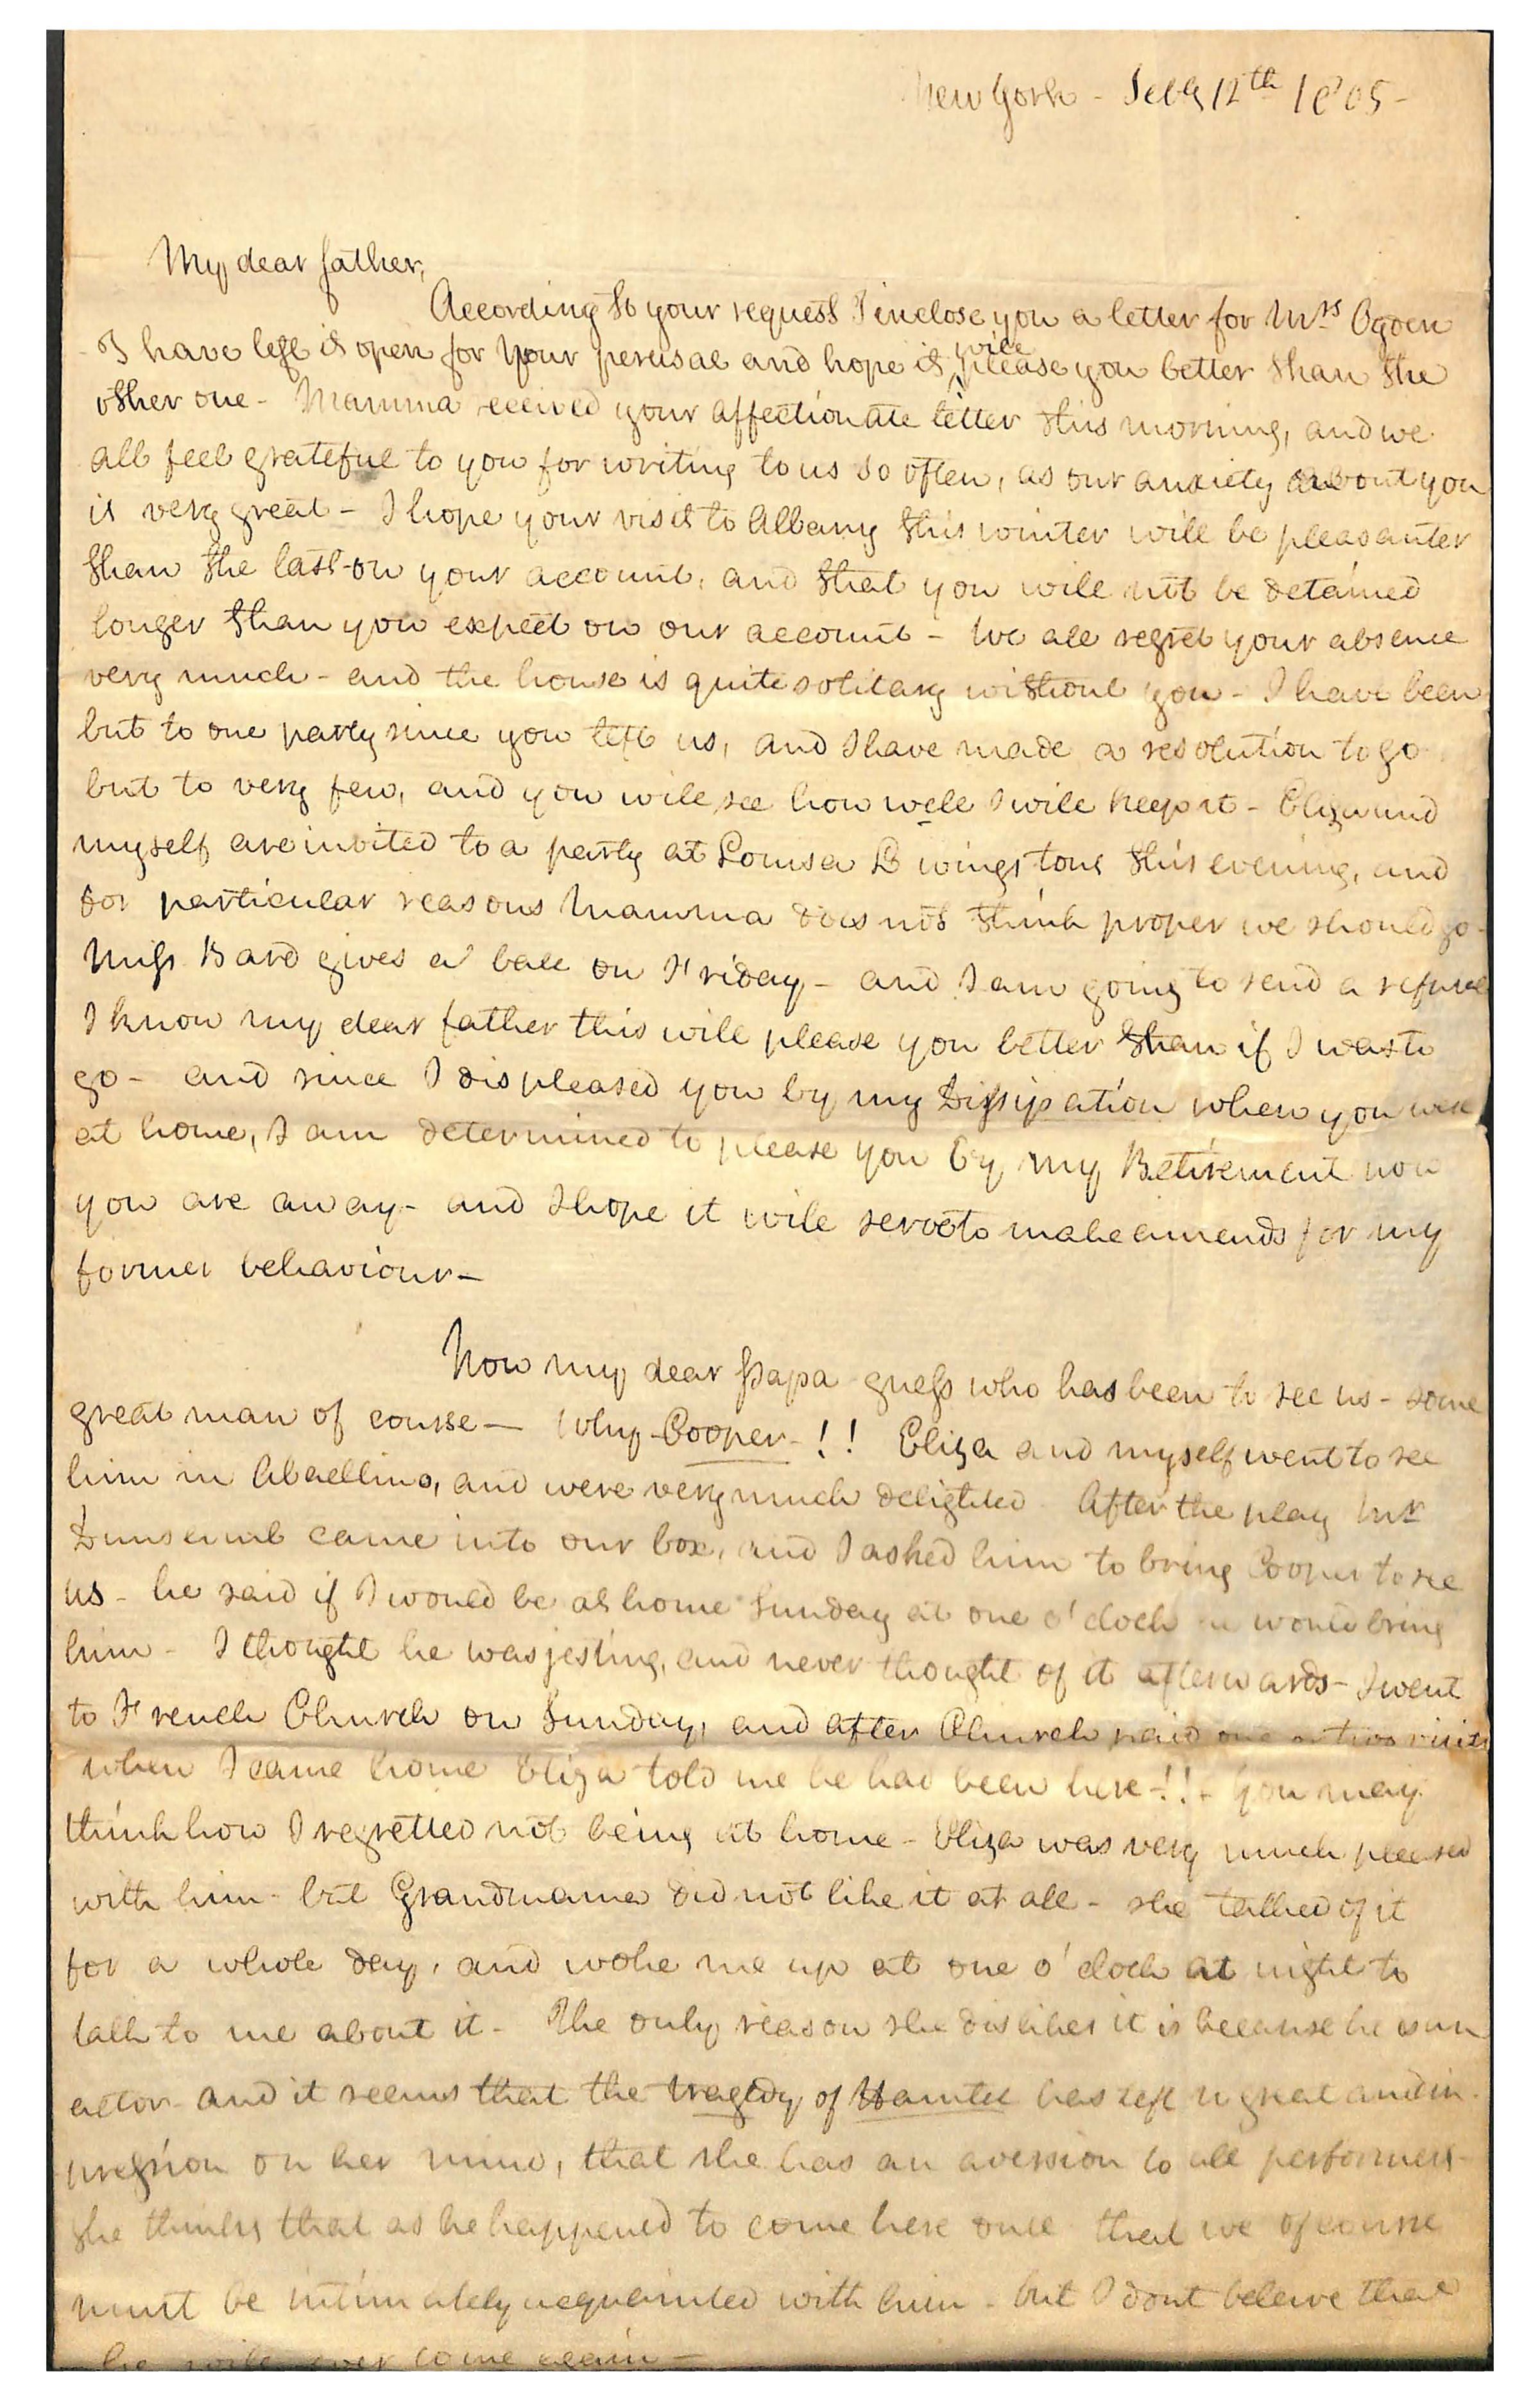 New York - Feby 12th 1805 -
My dear father,
According to your request I inclose you a letter for Mrs Ogden
I have left it open for your perusal and hope it will please you better than the
other one - Mamma received your affectionate letter this morning, and we
all feel grateful to you for writing to us so often, as our anxiety about you
is very great - I hope your visit to Albany this winter will be pleasanter
than the last on your account, and that you will not be detained
longer than you expect on our account - We all regret your absence
very much - and the house is quite solitary without you - I have been
but to one party since you left us, and I have made a resolution to go
but to very few, and you will see how well I will keep it - Eliza and
myself are invited to a party at Louisa Livingstons this evening, and
for particular reasons Mamma does not think proper we should go -
Miss Bard gives a ball on Friday - and I am going to send a refusal
I know my dear father this will please you better than if I was to
go - and since I displeased you by my Dissipation when you were
at home, I am determined to please you by my Retirement now
you are away - and I hope it will serve to make amends for my
former behaviour -
Now my dear Papa guess who has been to see us - some
great man of course - Why - Cooper - !! Eliza and myself went to see
him in Abaellino, and were very much delighted After the play Mr
came into our box, and I asked him to bring Cooper to see
us - he said if I would be at home Sunday at one o'clock he would bring
him - I thought he was jesting, and never thought of it afterwards - I went
to French Church on Sunday, and after Church paid one or two visits
when I came home Eliza told me he had been here - !! - You may
think how I regretted not being at home - Eliza was very much pleased
with him - but Grandmama did not like it at all - she talked of it
for a whole day, and woke me up at one o'clock at night to
talk to me about it - The only reason she dislikes it is because he is an
actor - and it seems that the tragedy of Hamlet has left so great an im-
pression on her mind, that she has an aversion to all performers -
She thinks that as he happened to come here once that we of course
must be intimately acquainted with him - but I dont beleive that
he will ever come again -